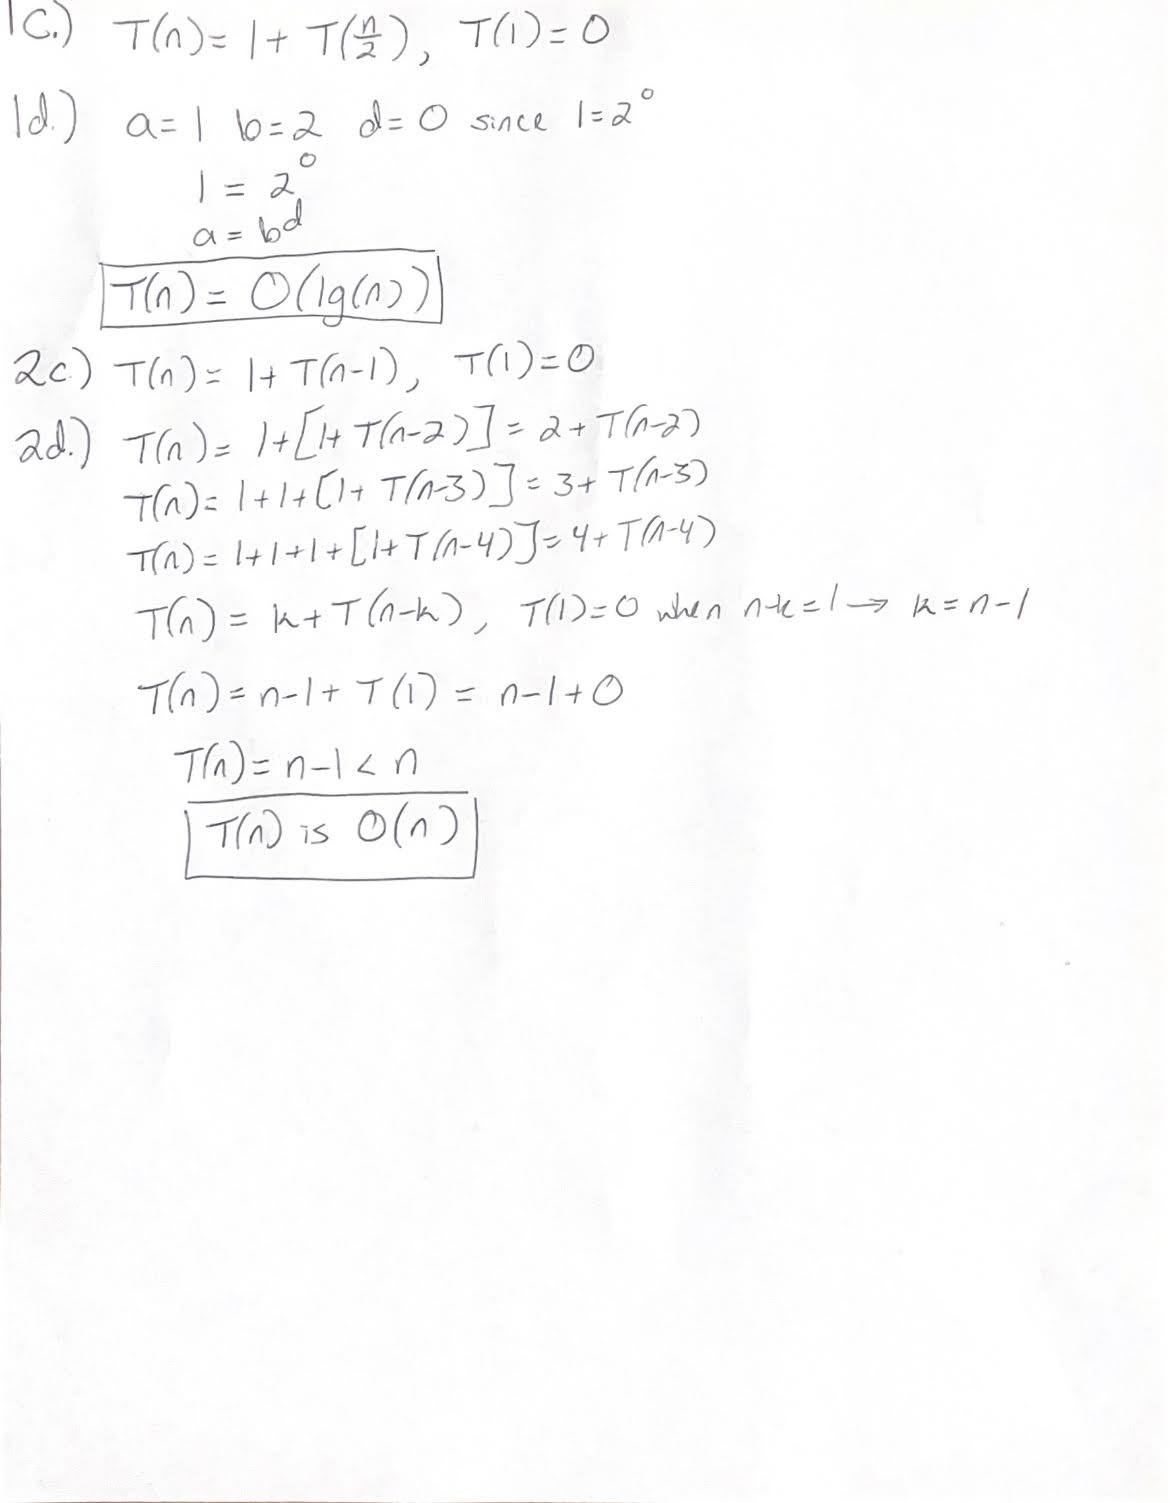 1c.) T(n) = 1 + T(n/2), T(1) = 0
1d.) a = 1 b = 2 d = 0 since 1 = 2^0
1 = 2^0
a = b^d
T(n) = O(lg(n))
2c.) T(n) = 1 + T(n-1), T(1) = 0
2d.) T(n) = 1 + [1 + T(n-2)] = 2 + T(n-2)
T(n) = 1 + 1 + [1 + T(n-3)] = 3 + T(n-3)
T(n) = 1 + 1 + 1 + [1 + T(n-4)] = 4 + T(n-4)
T(n) = k + T(n-k), T(1) = 0 when n-k = 1 → k = n-1
T(n) = n-1 + T(1) = n-1 + 0
T(n) = n-1 < n
T(n) is O(n)